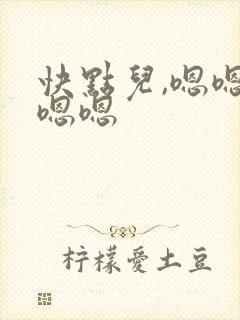 快點兒,嗯嗯
嗯嗯
柠檬愛土豆